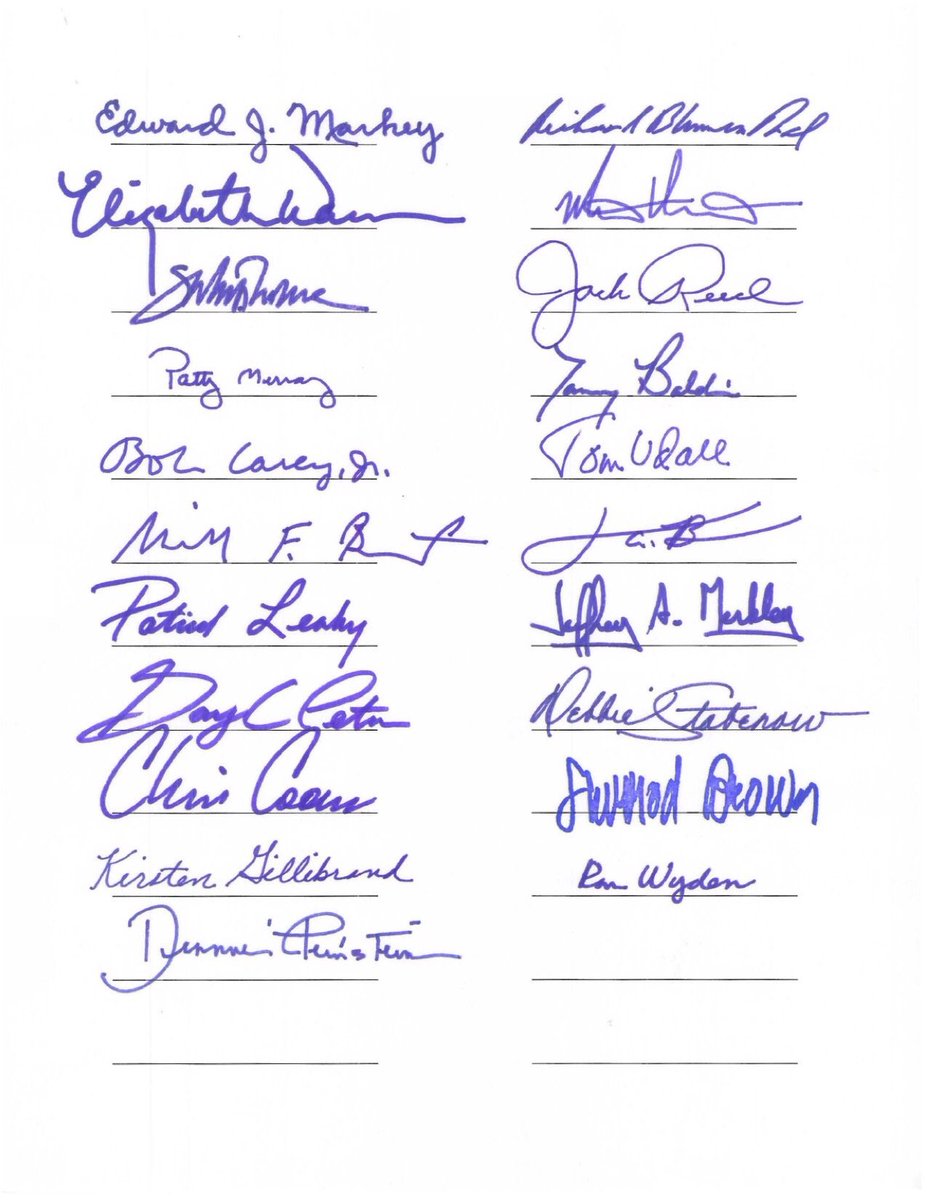 Edward J. Markey
Richard Blumenthal
Elizabeth Warren
Jack Reed
Patty Murray
Tammy Baldwin
Bob Casey, Jr.
Tom Udall
F.
Patrick Leahy
Jeffrey A. Merkley
Gary C Peters
Debbie Stabenow
Chris Coons
Sherrod Brown
Kirsten Gillibrand
Ron Wyden
Dianne Feinstein